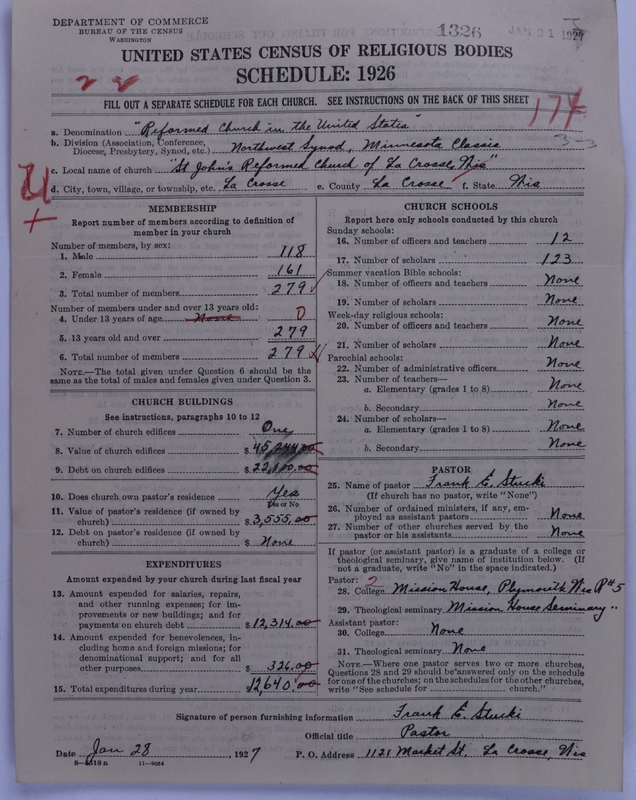 DEPARTMENT OF COMMERCE
BUREAU OF THE CENSUS
WASHINGTON
1326
JAN 31 1927
UNITED STATES CENSUS OF RELIGIOUS BODIES
SCHEDULE: 1926
FILL OUT A SEPARATE SCHEDULE FOR EACH CHURCH. SEE INSTRUCTIONS ON THE BACK OF THIS SHEET
174
3-3
a. Denomination "Reformed Church in the United States"
b. Division (Association, Conference, Diocese, Presbytery, Synod, etc.) Northwest Synod, Minnesota Classis
c. Local name of church "St John's Reformed Church of La Crosse, Wis"
d. City, town, village, or township, etc. La Crosse e. County La Crosse f. State Wis
MEMBERSHIP
Report number of members according to definition of
member in your church
Number of members, by sex:
1. Male 118
2. Female 161
3. Total number of members 279
Number of members under and over 13 years old:
4. Under 13 years of age None 0
5. 13 years old and over 279
6. Total number of members 279
NOTE.—The total given under Question 6 should be the
same as the total of males and females given under Question 3.
CHURCH BUILDINGS
See instructions, paragraphs 10 to 12
7. Number of church edifices One
8. Value of church edifices $
9. Debt on church edifices $ 22,100.00
10. Does church own pastor's residence Yes
Yes or No
11. Value of pastor's residence (if owned by
church) $ 3,555.00
12. Debt on pastor's residence (if owned by
church) $ None
EXPENDITURES
Amount expended by your church during last fiscal year
13. Amount expended for salaries, repairs,
and other running expenses; for im-
provements or new buildings; and for
payments on church debt $ 12,314.00
14. Amount expended for benevolences, in-
cluding home and foreign missions; for
denominational support; and for all
other purposes $ 326.00
15. Total expenditures during year 12,640.00
CHURCH SCHOOLS
Report here only schools conducted by this church
Sunday schools:
16. Number of officers and teachers 12
17. Number of scholars 123
Summer vacation Bible schools:
18. Number of officers and teachers None
19. Number of scholars None
Week-day religious schools:
20. Number of officers and teachers None
21. Number of scholars None
Parochial schools:
22. Number of administrative officers None
23. Number of teachers—
a. Elementary (grades 1 to 8) None
b. Secondary None
24. Number of scholars—
a. Elementary (grades 1 to 8) None
b. Secondary None
PASTOR
25. Name of pastor Frank E. Stucki
(If church has no pastor, write "None")
26. Number of ordained ministers, if any, em-
ployed as assistant pastors None
27. Number of other churches served by the
pastor or his assistants None
If pastor (or assistant pastor) is a graduate of a college or
theological seminary, give name of institution below. (If
not a graduate, write "No" in the space indicated.)
Pastor: 2
28. College Mission House, Plymouth Wis R#5
29. Theological seminary Mission House Seminary "
Assistant pastor:
30. College None
31. Theological seminary None
NOTE.—Where one pastor serves two or more churches,
Questions 28 and 29 should be answered only on the schedule
for one of the churches; on the schedules for the other churches,
write "See schedule for church."
Signature of person furnishing information Frank E. Stucki
Official title Pastor
Date Jan 28 1927 P. O. Address 1121 Market St. La Crosse, Wis
8—4519a 11—9054